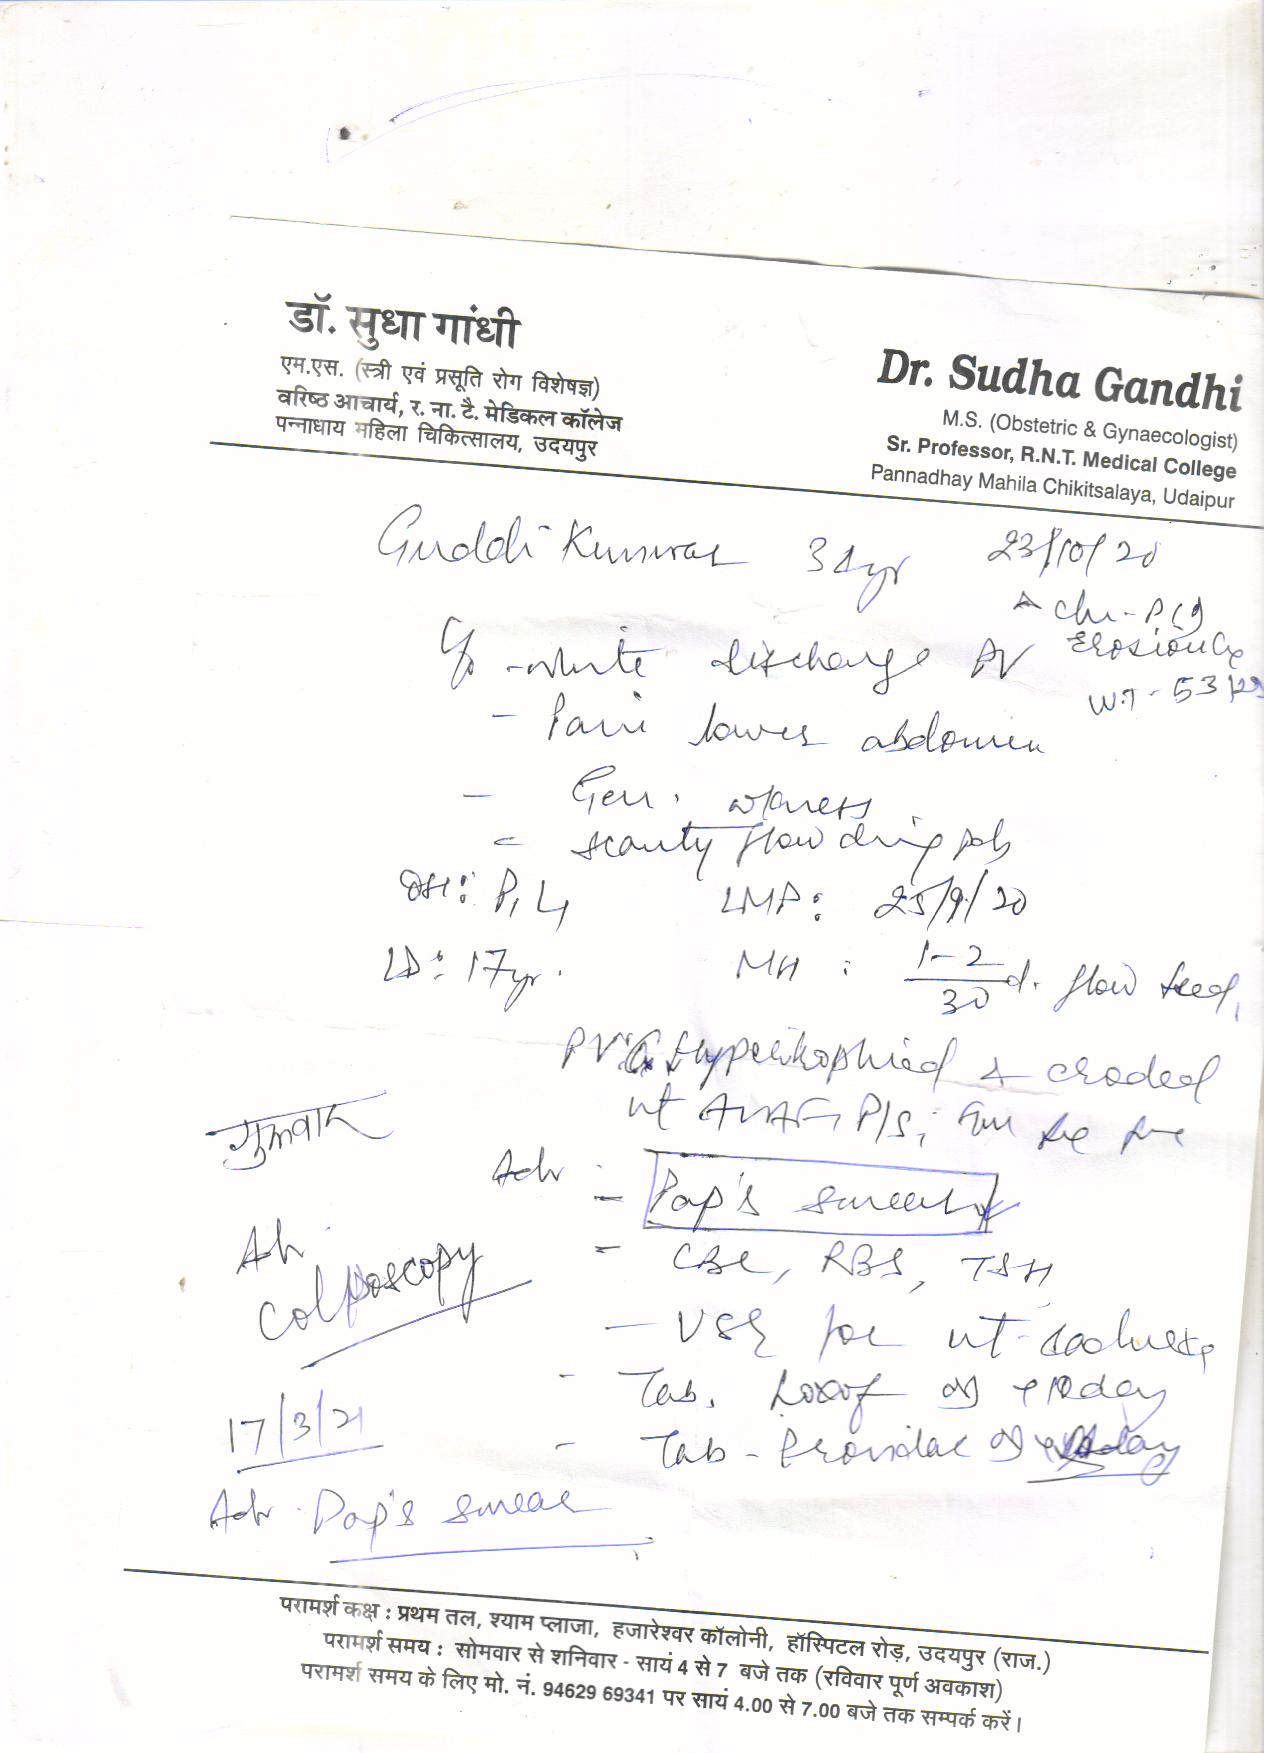 डॉ. सुधा गांधी
एम.एस. (स्त्री एवं प्रसूति रोग विशेषज्ञ)
वरिष्ठ आचार्य, र. ना. टै. मेडिकल कॉलेज
पन्नाधाय महिला चिकित्सालय, उदयपुर
Dr. Sudha Gandhi
M.S. (Obstetric & Gynaecologist)
Sr. Professor, R.N.T. Medical College
Pannadhay Mahila Chikitsalaya, Udaipur
Guddi Kunwar 23/10/20
Erosion Cx
WT - 53 kg
C/o - white discharge PV
- Pain lower abdomen
- Gen. wkness
- scanty flow
OH: P1 L1 LMP: 25/9/20
LD: 17yr. MH : 1-2/30 d. flow
PV Cx Hypertrophied & eroded
ut AVAF, P/S,
गुरुवार
Adv - Pap's smear
- CBC, RBS, TSH
Adv
Colposcopy
- USG for ut
- Tab.
17/3/21
- Tab -
Adv. Pap's smear
परामर्श कक्ष : प्रथम तल, श्याम प्लाजा, हजारेश्वर कॉलोनी, हॉस्पिटल रोड़, उदयपुर (राज.)
परामर्श समय : सोमवार से शनिवार - सायं 4 से 7 बजे तक (रविवार पूर्ण अवकाश)
परामर्श समय के लिए मो. नं. 94629 69341 पर सायं 4.00 से 7.00 बजे तक सम्पर्क करें।